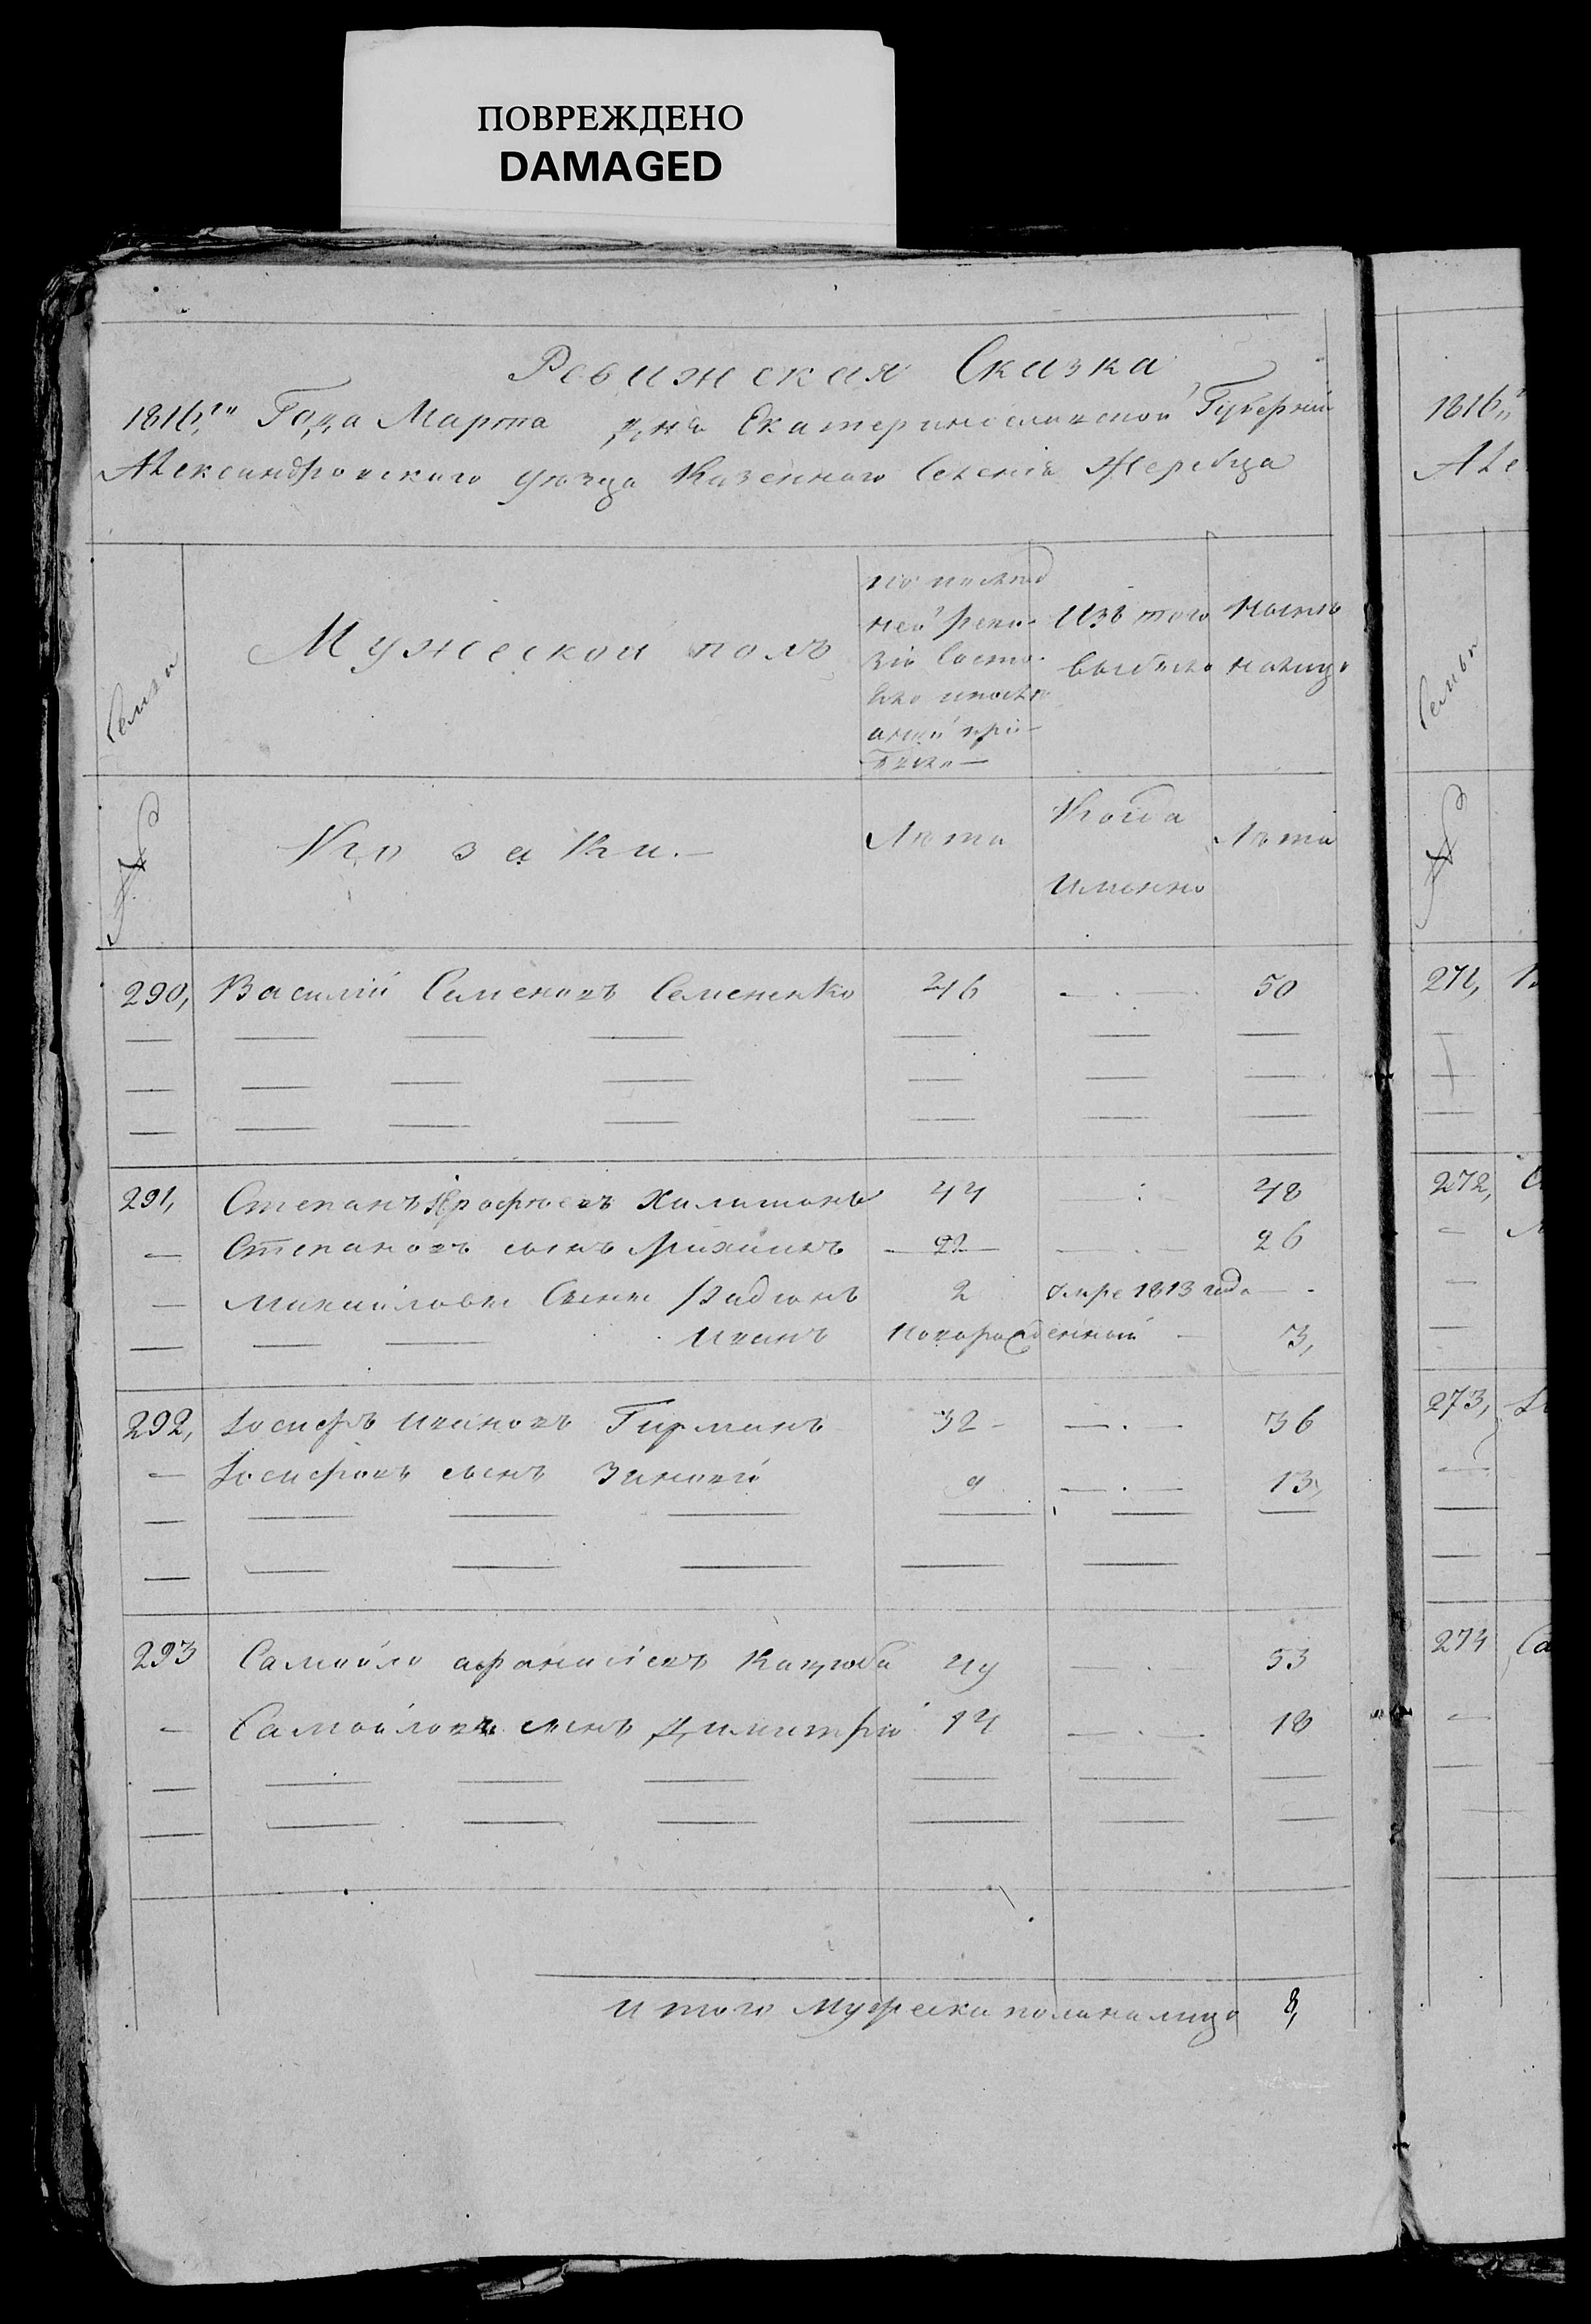 ПОВРЕЖДЕНО
DAMAGED
Ревижская Сказка
1816,го Года Марта дня Екатеринославской Губерніи
Александровского уѣзда Казенного Селенія Жеребца
Семьи
Мужеской полъ
по послѣд
ней реви
зіи состо
яло и послѣ
оной при
было
Изъ того
выбыло
Нынѣ
налицо
№
Козаки.
Лѣта
Когда
именно
Лѣта
290, Василій Семеновъ Семененко 46 50
291, Степанъ Ерофѣевъ 44 48
Степановъ сынъ Михаилъ 22 26
Михайловы Сыны Радіонъ 2 умре 1813 года
Иванъ новорожденный 3,
292, Іосифъ Ивановъ 32 36
Іосифовъ сынъ Зиновій 9 13,
293 Самойло Афанасіевъ 49 53
Самойловъ сынъ Димитрій 14 18
Итого мужеска пола налицо 8,
1816,
Але
Семьи
№
271,
272,
273,
274 Са